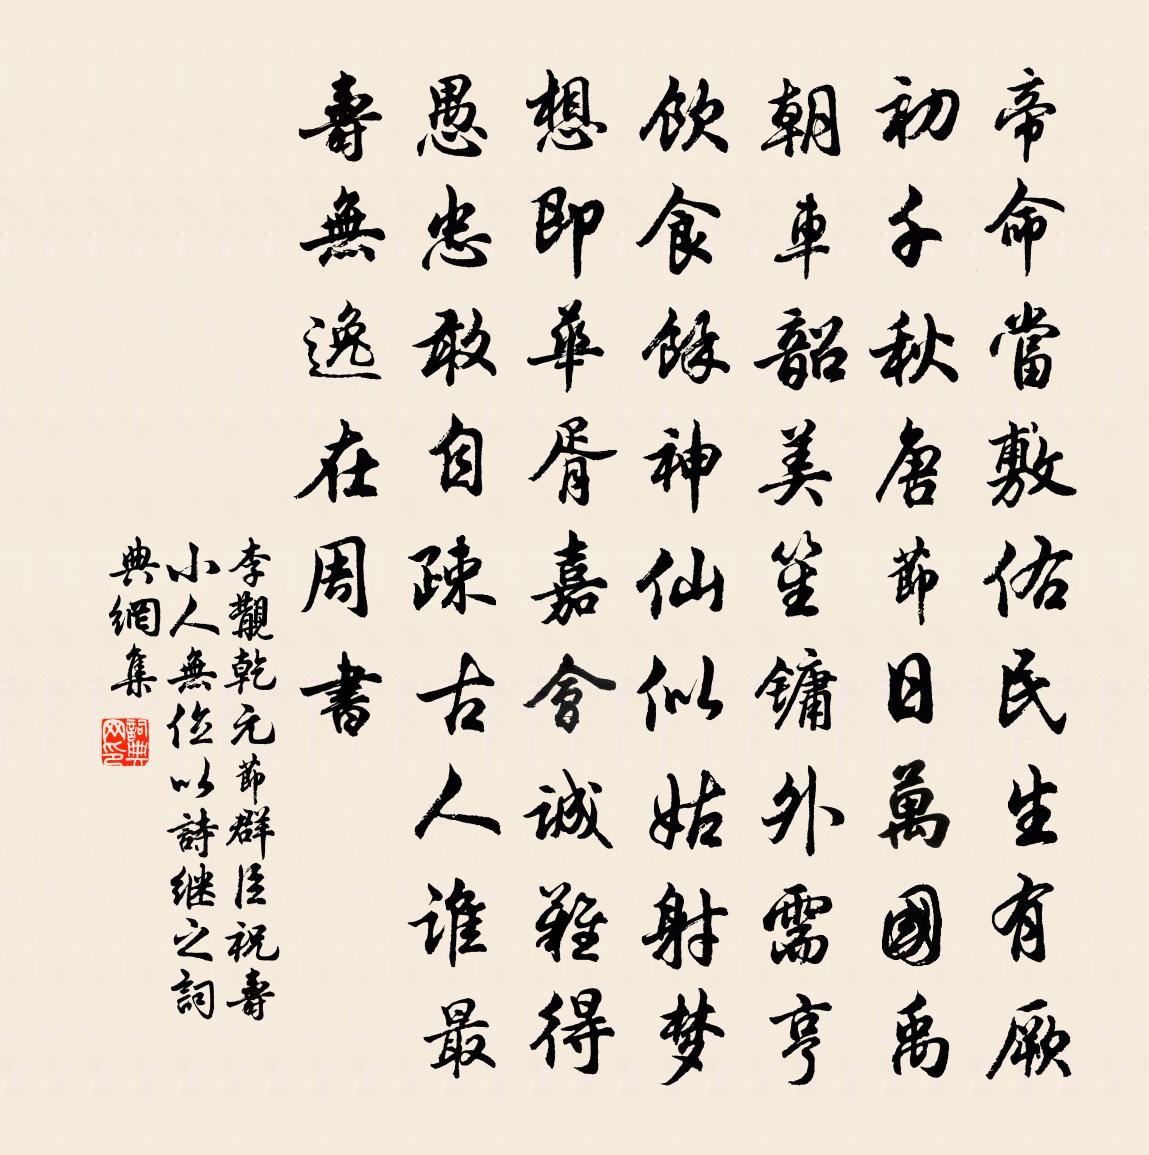 帝命當敷佑民生有厥
初千秋唐節日萬國禹
朝車韶美笙鏞外需亨
飲食餘神仙似姑射梦
想即華胥嘉會誠難得
愚忠敢自疎古人谁最
壽無逸在周書
李覯乾元節群臣祝壽
小人無位以詩継之詞
典網集
詞典网印